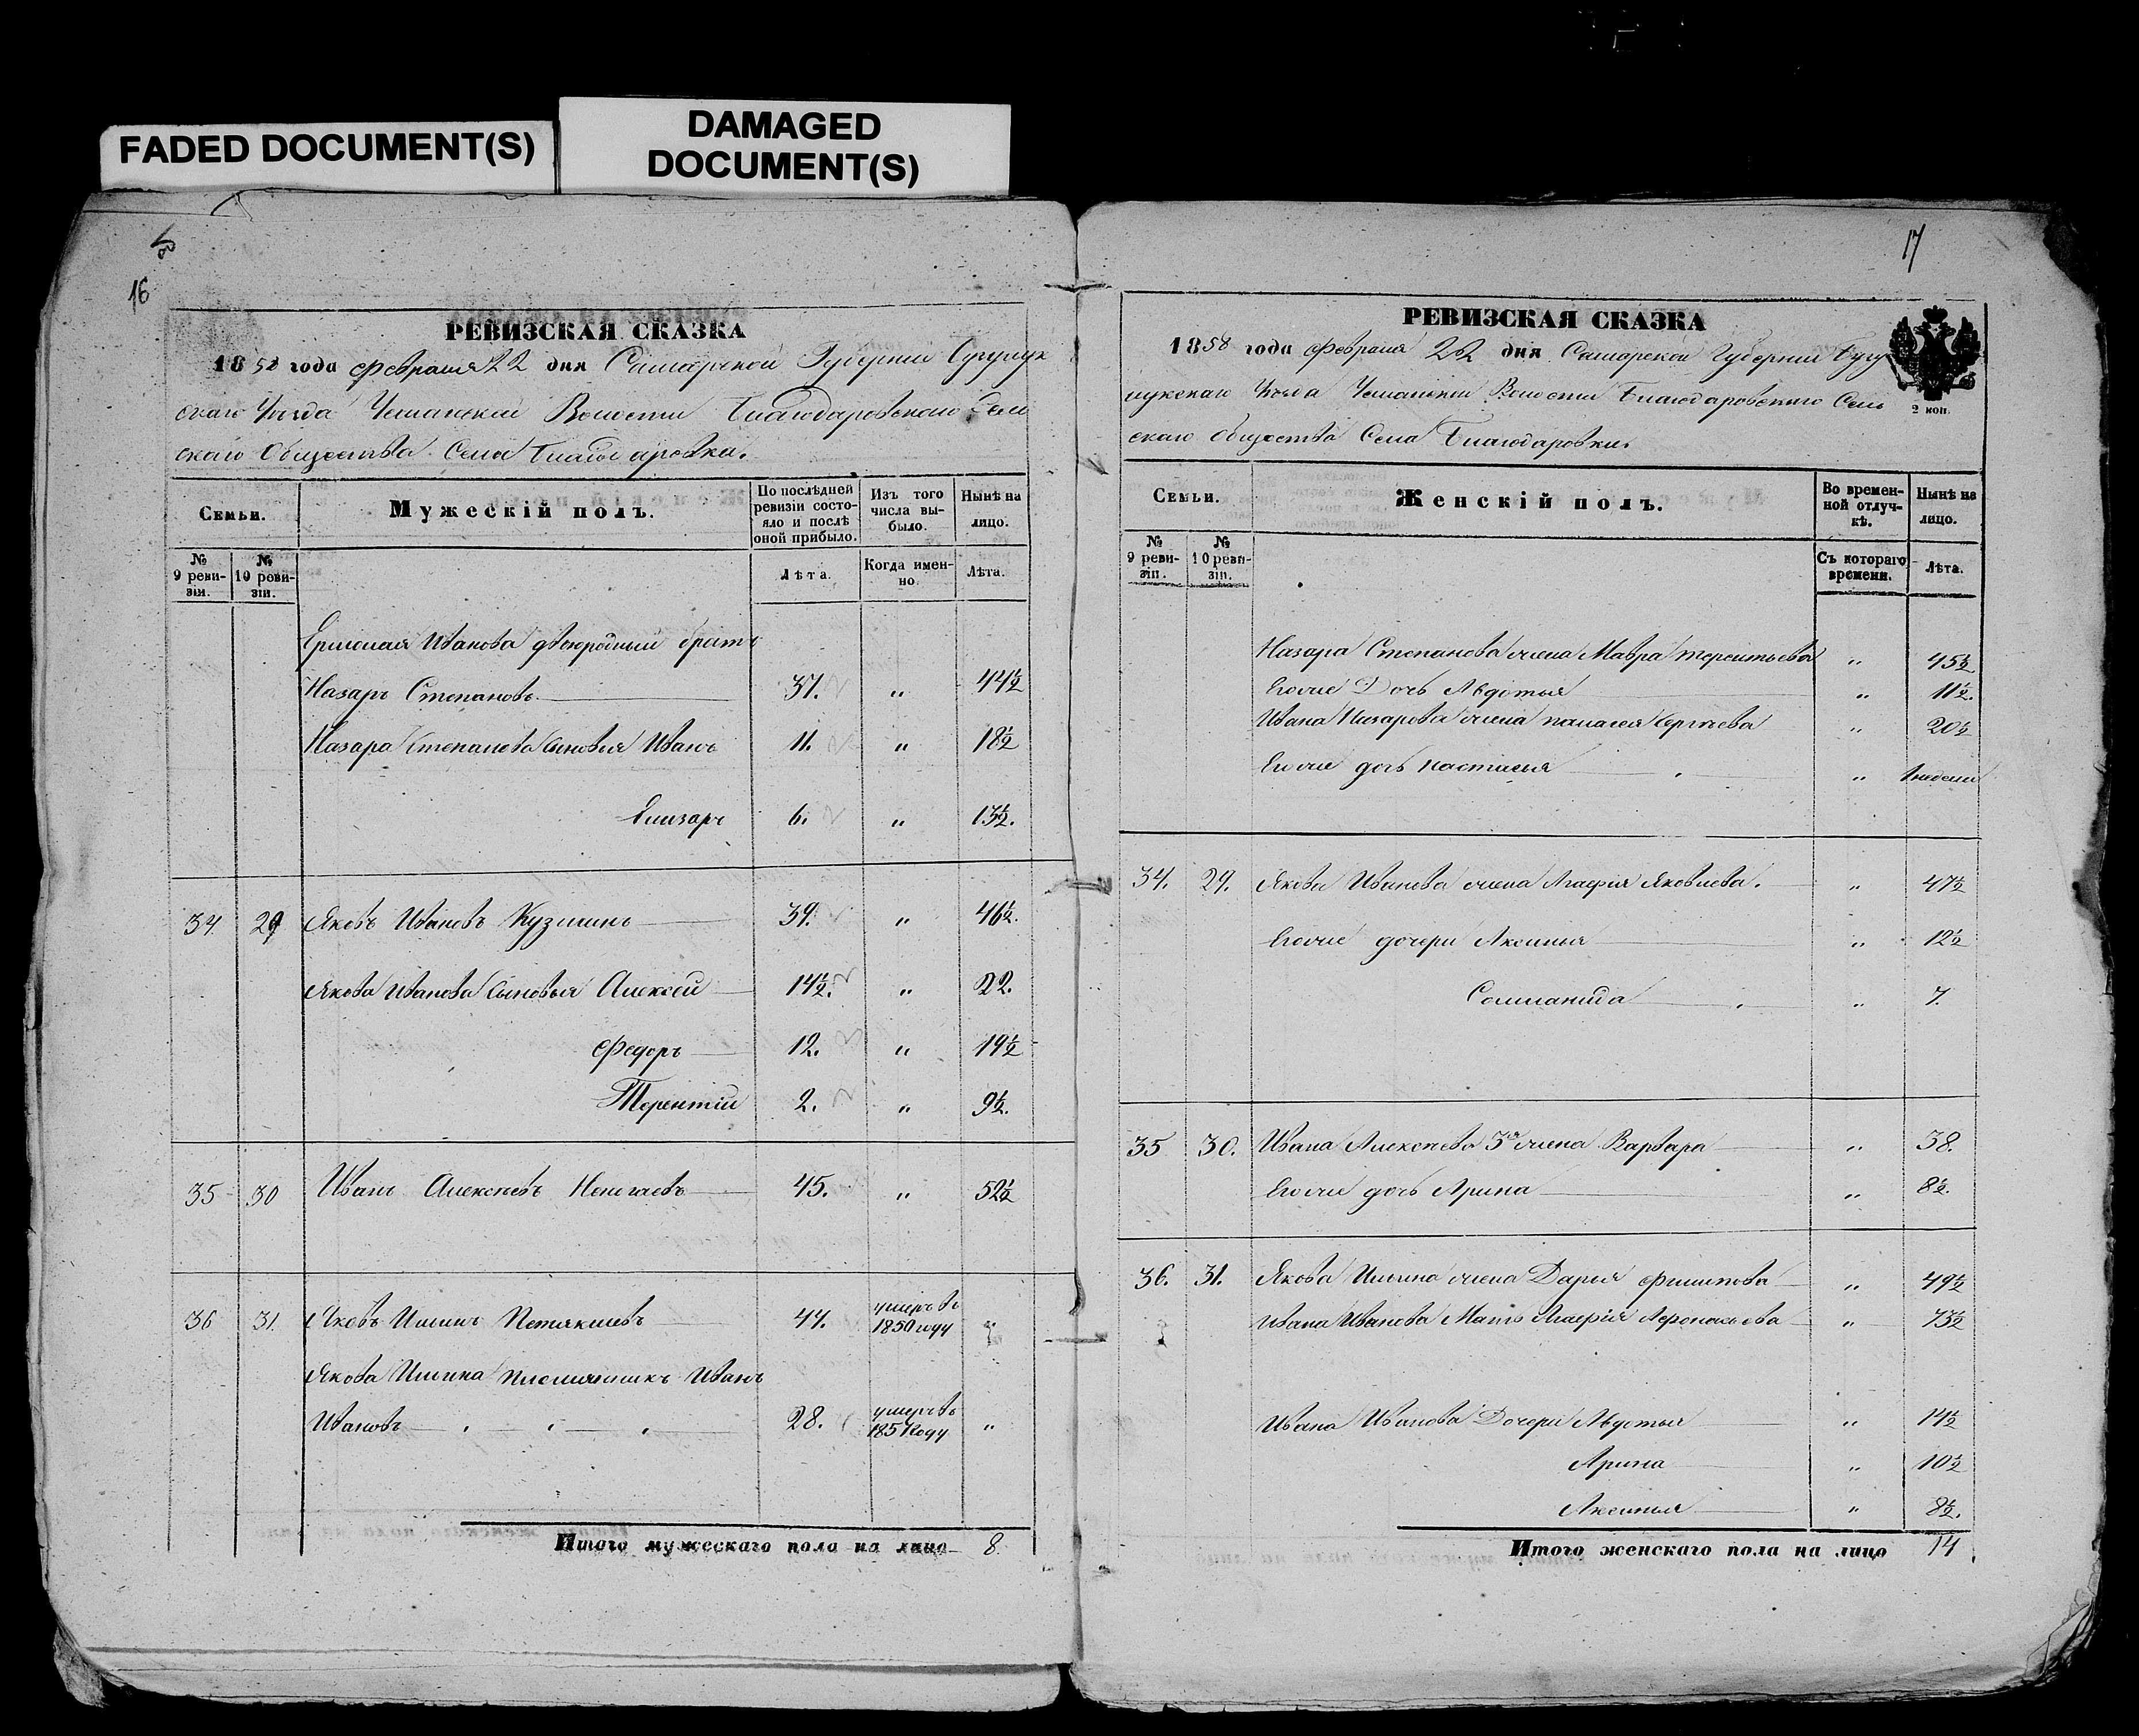 FADED DOCUMENT(S)
DAMAGED
DOCUMENT(S)
16
РЕВИЗСКАЯ СКАЗКА
1858 года Февраля 22 дня Самарской Губерніи Бугурук
скаго Уѣзда Волости Благодаровскаго Сель
скаго Общества Села Благодаровки.
Семьи.
Мужескій полъ.
По послѣдней
ревизіи состо-
яло и послѣ
оной прибыло.
Изъ того
числа вы-
было.
Нынѣ на
лицо.
№
9 реви-
зіи.
№
10 реви-
зіи.
Лѣта.
Когда имен-
но.
Лѣта.
Иванова двоюродный братъ
Назаръ Степановъ 37. " 44½
Назара Степанова сыновья Иванъ 11. " 18½
Елизаръ 6. " 13½.
34 29 Яковъ Ивановъ Кузминъ 39. " 46½.
Якова Иванова сыновья Алексей 14½. " 22.
Федоръ 12. " 19½
Терентій 2. " 9½.
35 30 Иванъ Алексѣевъ 45. " 52½
36 31. Яковъ Ильинъ 44. умеръ въ 1850 году "
Якова Ильина племянникъ Иванъ
Ивановъ 28. умеръ въ 1851 году "
Итого мужескаго пола на лицо 8.
17
РЕВИЗСКАЯ СКАЗКА
1858 года Февраля 22 дня Самарской Губерніи Бугу
Уѣзда Волости Благодаровскаго Сель
скаго общества Села Благодаровки.
2 коп.
Семьи.
Женскій полъ.
Во времен-
ной отлуч-
кѣ.
Нынѣ на
лицо.
№
9 реви-
зіи.
№
10 реви-
зіи.
Съ котораго
времени.
Лѣта.
Назара Степанова жена Мавра Терентьева " 45½
Егоже Дочь Авдотья " 11½.
Ивана Назарова жена Палагея Сергѣева " 20½
Егоже дочь Настасья " недели
34. 29. Якова Иванова жена Агафія Яковлева. " 47½
Егоже дочери Аксинья " 12½
Соломанида " 7.
35 30. Ивана Алексѣева 3я жена Варвара " 38.
Егоже дочь Арина " 8½.
36. 31. Якова Ильина жена Дарья Филипова " 49½
Ивана Иванова Мать Агафія " 73½
Ивана Иванова Дочери Авдотья " 14½
Арина " 10½
Аксинья " 8½.
Итого женскаго пола на лицо 14